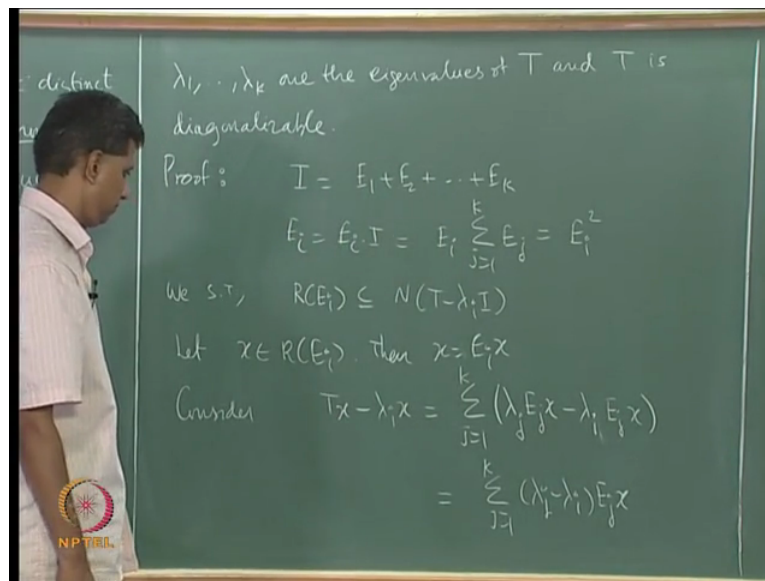 distinct
λ1, .., λk are the eigenvalues of T and T is
diagonalizable.
Proof: I = E1 + E2 + ... + Ek
Ei = Ei.I = Ei ∑_{j=1}^{k} Ej = Ei^2
We S.T, R(Ei) ⊆ N(T-λiI)
Let x ∈ R(Ei). Then x = Eix
Consider Tx - λix = ∑_{j=1}^{k} (λjEjx - λiEjx)
= ∑_{j=1}^{k} (λj-λi)Ejx
NPTEL